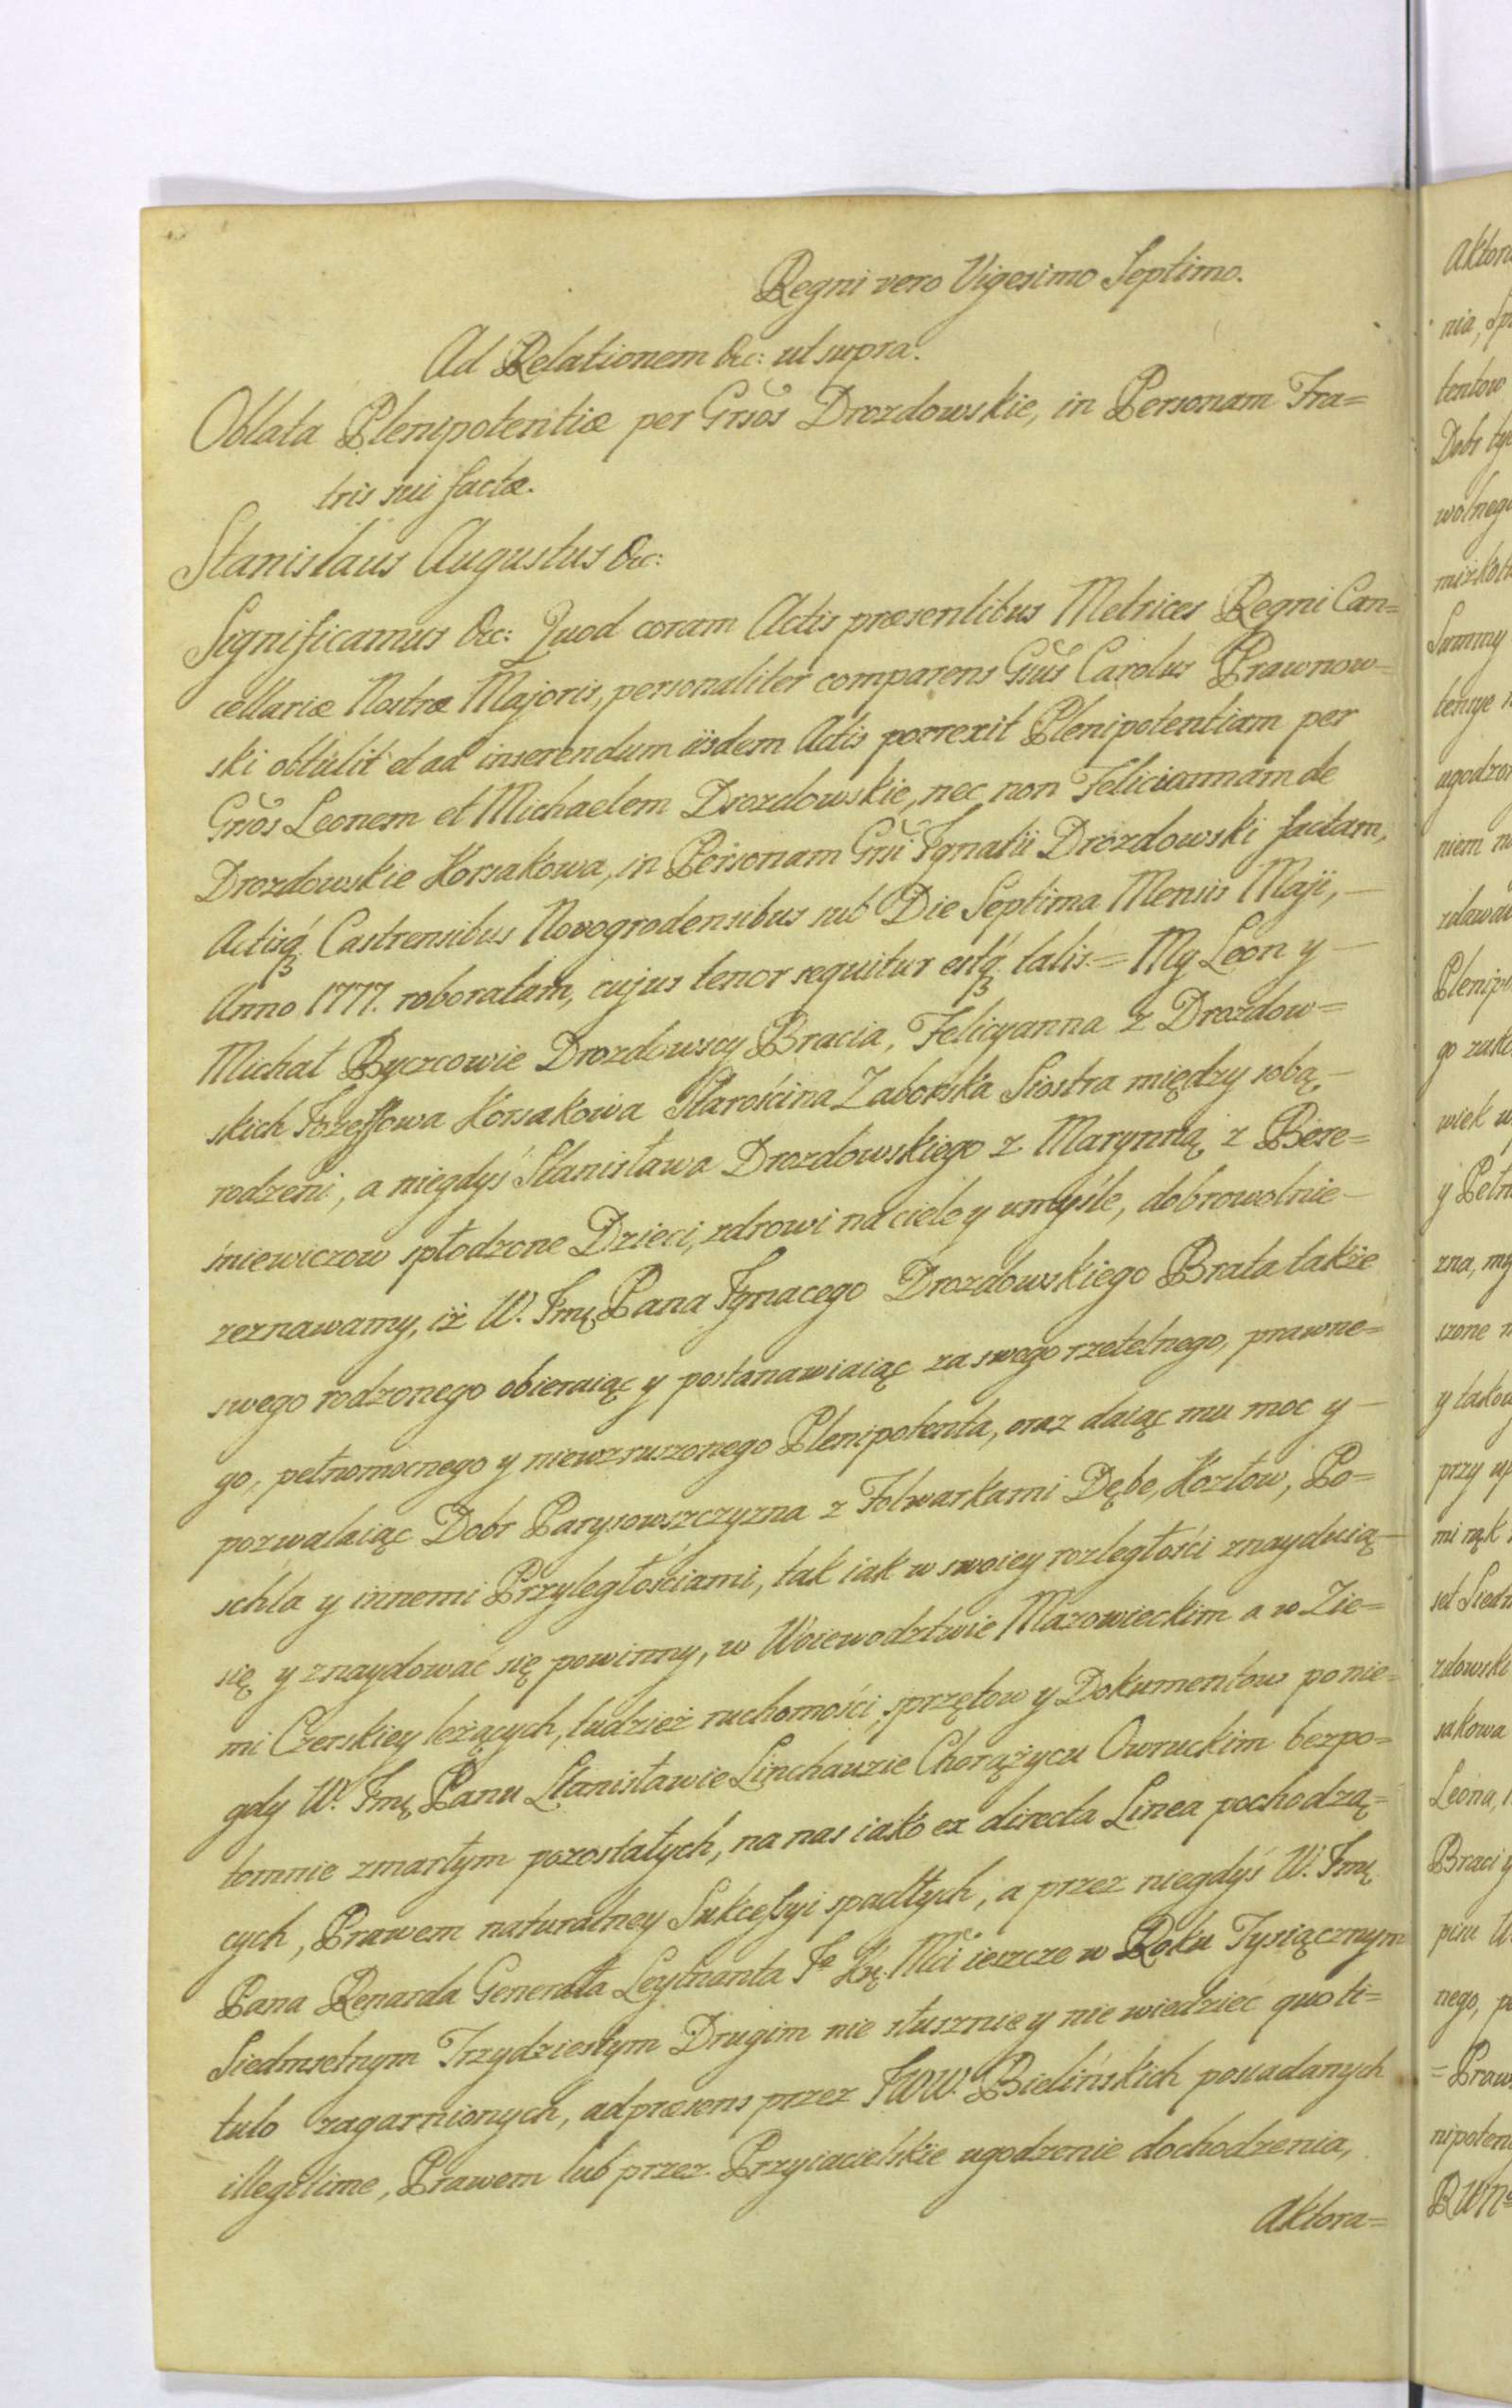 Regni vero Vigesimo Septimo.
Ad Relationem &c: ut supra.
Oblata Plenipotentiæ per Grsos Drozdowskie, in Personam Fra=
tris sui factæ.
Stanislaus Augustus &c:
Significamus &c: Quod coram Actis præsentibus Metrices Regni Can=
cellariæ Nostræ Majoris, personaliter comparens Gsus Carolus Prawnow=
ski obtulit et ad inserendum iisdem Actis porrexit Plenipotentiam per
Grsos Leonem et Michaelem Drozdowskie, nec non Feliciannam de
Drozdowskie Korsakowa, in Personam Grsi Ignatii Drozdowski factam,
Actisq́ Castrensibus Novogrodensibus sub Die Septima Mensis Maji, —
Anno 1777. roboratam, cujus tenor sequitur estq́ talis = My Leon y —
Michał Byczcowie Drozdowscy Bracia, Felicyanna z Drozdow=
skich Jozeffowa Korsakowa Starościna Zaborska Siostra między sobą, —
rodzeni, a niegdyś Stanisława Drozdowskiego z Marynną z Bere=
śniewiczow spłodzone Dzieci, zdrowi na ciele y umyśle, dobrowolnie —
zeznawamy, iż W. Jmę Pana Ignacego Drozdowskiego Brata także
swego rodzonego obieraiąc y postanawiaiąc za swego rzetelnego, prawne=
go, pełnomocnego y niewzruszonego Plenipotenta, oraz daiąc mu moc y —
pozwalaiąc Dobr Parysowszczyzna z Folwarkami Dębe, Kozłow, Po=
schła y innemi Przyległościami, tak iak w swoiey rozległości znayduią —
się y znaydować się powinny, w Woiewodztwie Mazowieckim a w Zie=
mi Czerskiey leżących, tudzież ruchomości, sprzętow y Dokumentow po nie=
gdy W. Jmę Panu Stanisławie Linchauzie Chorążycu Owruckim bezpo=
tomnie zmarłym pozostałych, na nas iako ex directa Linea pochodzą=
cych, Prawem naturalney Sukceſsyi spadłych, a przez niegdyś W. Jmę
Pana Renarda Generała Leytnanta Jº Kę. Mci ieszcze w Roku Tysiącznym
Siedmsetnym Trzydziestym Drugim nie słusznie y nie wiedzieć quo ti=
tulo zagarnionych, ad præsens przez JWW. Bielińskich posiadanych
illegitime, Prawem lub przez Przyiacielskie ugodzenie dochodzenia,
Aktora=
Aktora
nia,
tentow
Dobr tyc
wolnego
Summy
ugodzon
niem
zdawa
Plenip
go
wiek
y Pełn
zna, my
szone
y takow
przy
mi rąk
set Siedm
zdowski
sakowa
Leona,
Braci y
nego,
= Praw
nipoten